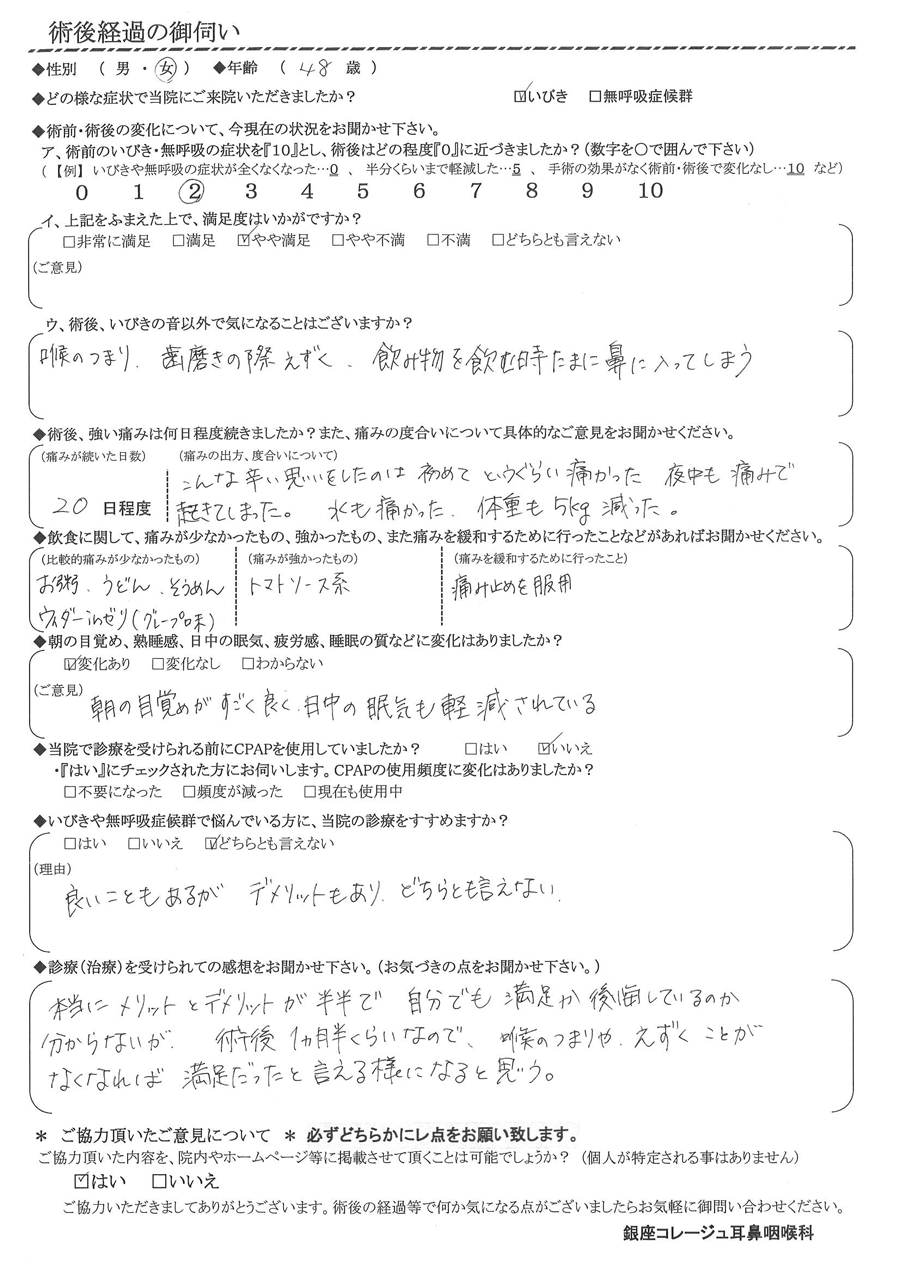 術後経過の御伺い
◆性別 （ 男 ・ 女 ） ◆年齢 （ 48 歳 ）
◆どの様な症状で当院にご来院いただきましたか？ ☑いびき □無呼吸症候群
◆術前・術後の変化について、今現在の状況をお聞かせ下さい。
ア、術前のいびき・無呼吸の症状を『10』とし、術後はどの程度『0』に近づきましたか？（数字を○で囲んで下さい）
（ 【例】 いびきや無呼吸の症状が全くなくなった…0 、 半分くらいまで軽減した…5 、 手術の効果がなく術前・術後で変化なし…10 など）
0 1 ② 3 4 5 6 7 8 9 10
イ、上記をふまえた上で、満足度はいかがですか？
□非常に満足 □満足 ☑やや満足 □やや不満 □不満 □どちらとも言えない
（ご意見）
ウ、術後、いびきの音以外で気になることはございますか？
喉のつまり、歯磨きの際えずく、飲み物を飲む時たまに鼻に入ってしまう
◆術後、強い痛みは何日程度続きましたか？また、痛みの度合いについて具体的なご意見をお聞かせください。
（痛みが続いた日数） （痛みの出方、度合いについて）
こんな辛い思いをしたのは 初めて というぐらい痛かった 夜中も痛みで
20 日程度 起きてしまった。 水も痛かった、体重も5kg 減った。
◆飲食に関して、痛みが少なかったもの、強かったもの、また痛みを緩和するために行ったことなどがあればお聞かせください。
（比較的痛みが少なかったもの） （痛みが強かったもの） （痛みを緩和するために行ったこと）
お粥、うどん、そうめん トマトソース系 痛み止めを服用
ウィダーinゼリ（グレープ味）
◆朝の目覚め、熟睡感、日中の眠気、疲労感、睡眠の質などに変化はありましたか？
☑変化あり □変化なし □わからない
（ご意見）
朝の目覚めがすごく良く、日中の眠気も軽減されている
◆当院で診療を受けられる前にCPAPを使用していましたか？ □はい ☑いいえ
・『はい』にチェックされた方にお伺いします。CPAPの使用頻度に変化はありましたか？
□不要になった □頻度が減った □現在も使用中
◆いびきや無呼吸症候群で悩んでいる方に、当院の診療をすすめますか？
□はい □いいえ ☑どちらとも言えない
（理由）
良いこともあるが デメリットもあり、どちらとも言えない、
◆診療（治療）を受けられての感想をお聞かせ下さい。（お気づきの点をお聞かせ下さい。）
本当に メリットとデメリットが半半で 自分でも 満足か後悔しているのか
分からないが、 術後1ヵ月半くらいなので、喉のつまりや、えずくことが
なくなれば 満足だったと言える様になると思う。
＊ ご協力頂いたご意見について ＊ 必ずどちらかにレ点をお願い致します。
ご協力頂いた内容を、院内やホームページ等に掲載させて頂くことは可能でしょうか？ （個人が特定される事はありません）
☑はい □いいえ
ご協力いただきましてありがとうございます。術後の経過等で何か気になる点がございましたらお気軽に御問い合わせください。
銀座コレージュ耳鼻咽喉科